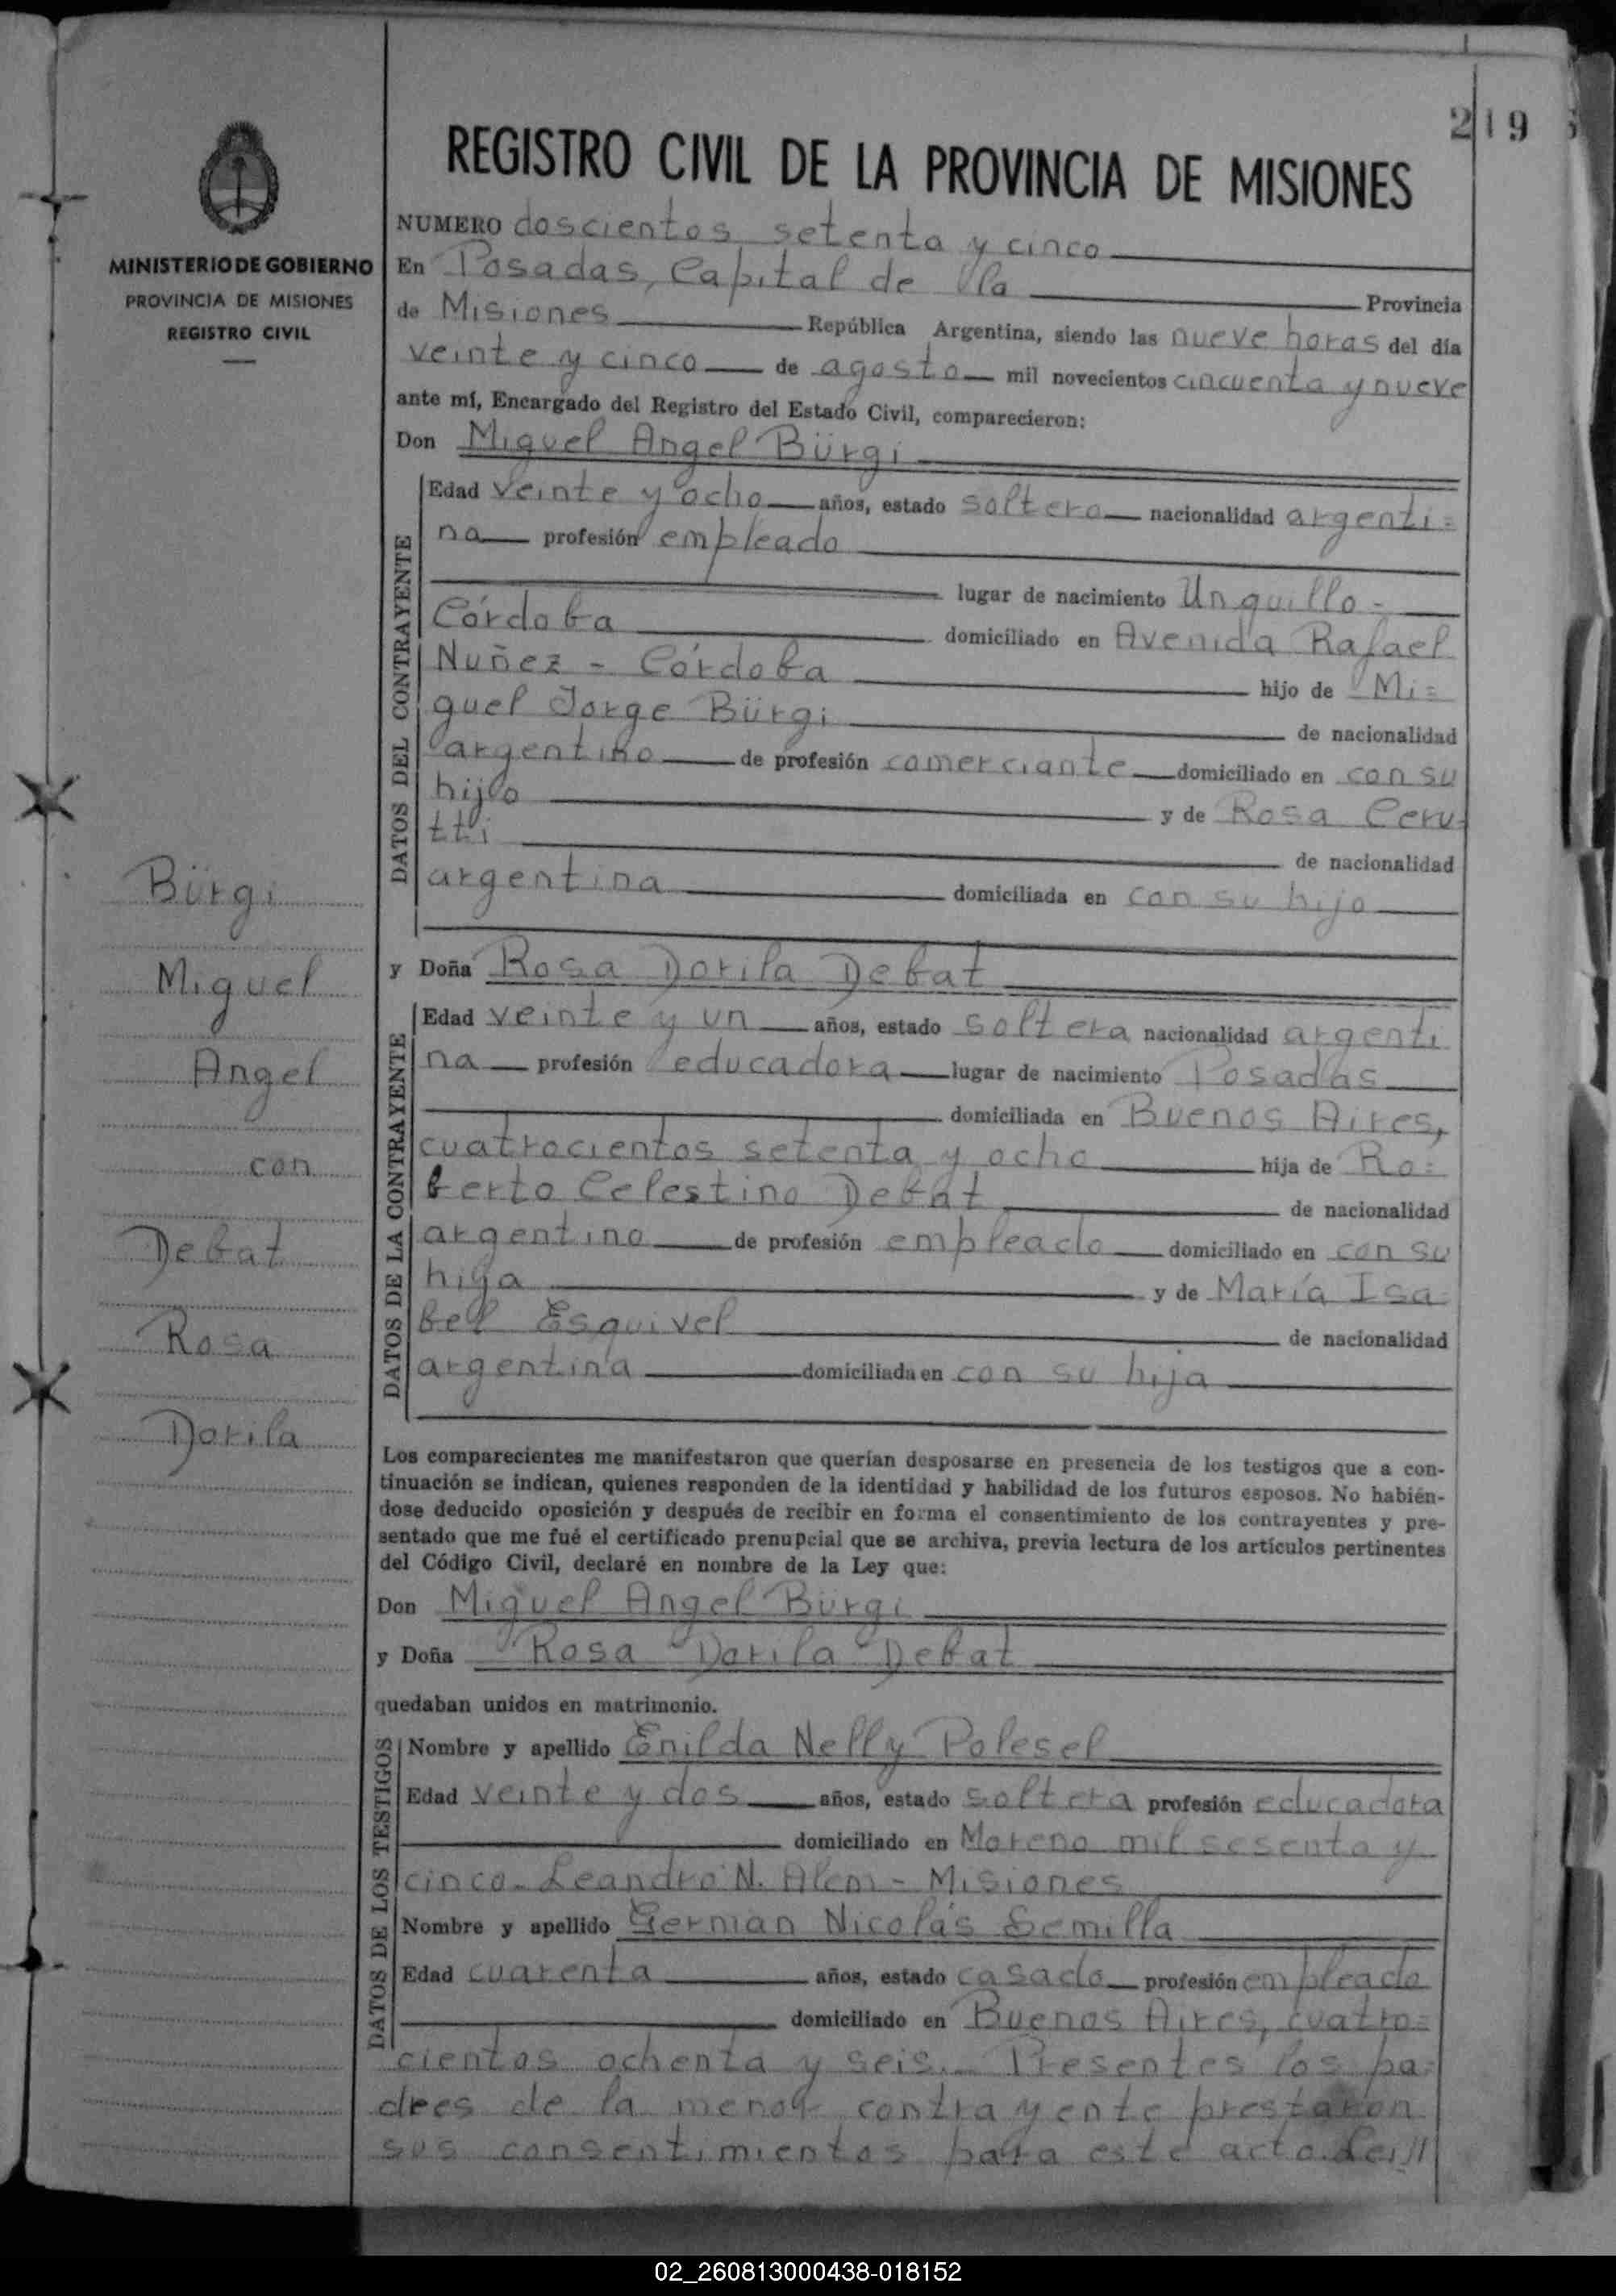 219
REGISTRO CIVIL DE LA PROVINCIA DE MISIONES
MINISTERIO DE GOBIERNO
PROVINCIA DE MISIONES
REGISTRO CIVIL
NUMERO doscientos setenta y cinco
En Posadas, Capital de la Provincia
de Misiones República Argentina, siendo las nueve horas del día
veinte y cinco de agosto mil novecientos cincuenta y nueve
ante mí, Encargado del Registro del Estado Civil, comparecieron:
Don Miguel Angel Bürgi
DATOS DEL CONTRAYENTE
Edad veinte y ocho años, estado soltero nacionalidad argenti=
na profesión empleado
lugar de nacimiento Unquillo -
Córdoba domiciliado en Avenida Rafael
Nuñez - Córdoba hijo de Mi=
guel Jorge Bürgi de nacionalidad
argentino de profesión comerciante domiciliado en con su
hijo y de Rosa Ceru=
tti de nacionalidad
argentina domiciliada en con su hijo
y Doña Rosa Dorila Debat
DATOS DE LA CONTRAYENTE
Edad veinte y un años, estado soltera nacionalidad argenti
na profesión educadora lugar de nacimiento Posadas
domiciliada en Buenos Aires,
cuatrocientos setenta y ocho hija de Ro=
berto Celestino Debat de nacionalidad
argentino de profesión empleado domiciliado en con su
hija y de María Isa=
bel Esquivel de nacionalidad
argentina domiciliada en con su hija
Bürgi
Miguel
Angel
con
Debat
Rosa
Dorila
Los comparecientes me manifestaron que querían desposarse en presencia de los testigos que a con-
tinuación se indican, quienes responden de la identidad y habilidad de los futuros esposos. No habién-
dose deducido oposición y después de recibir en forma el consentimiento de los contrayentes y pre-
sentado que me fué el certificado prenupcial que se archiva, previa lectura de los artículos pertinentes
del Código Civil, declaré en nombre de la Ley que:
Don Miguel Angel Bürgi
y Doña Rosa Dorila Debat
quedaban unidos en matrimonio.
DATOS DE LOS TESTIGOS
Nombre y apellido Enilda Nelly Polesel
Edad veinte y dos años, estado soltera profesión educadora
domiciliado en Moreno mil sesenta y
cinco - Leandro N. Alem - Misiones
Nombre y apellido German Nicolás Semilla
Edad cuarenta años, estado casado profesión empleado
domiciliado en Buenos Aires, cuatro=
cientos ochenta y seis. Presentes los pa=
dres de la menor contrayente prestaron
sus consentimientos para este acto. Lei//
02_260813000438-018152